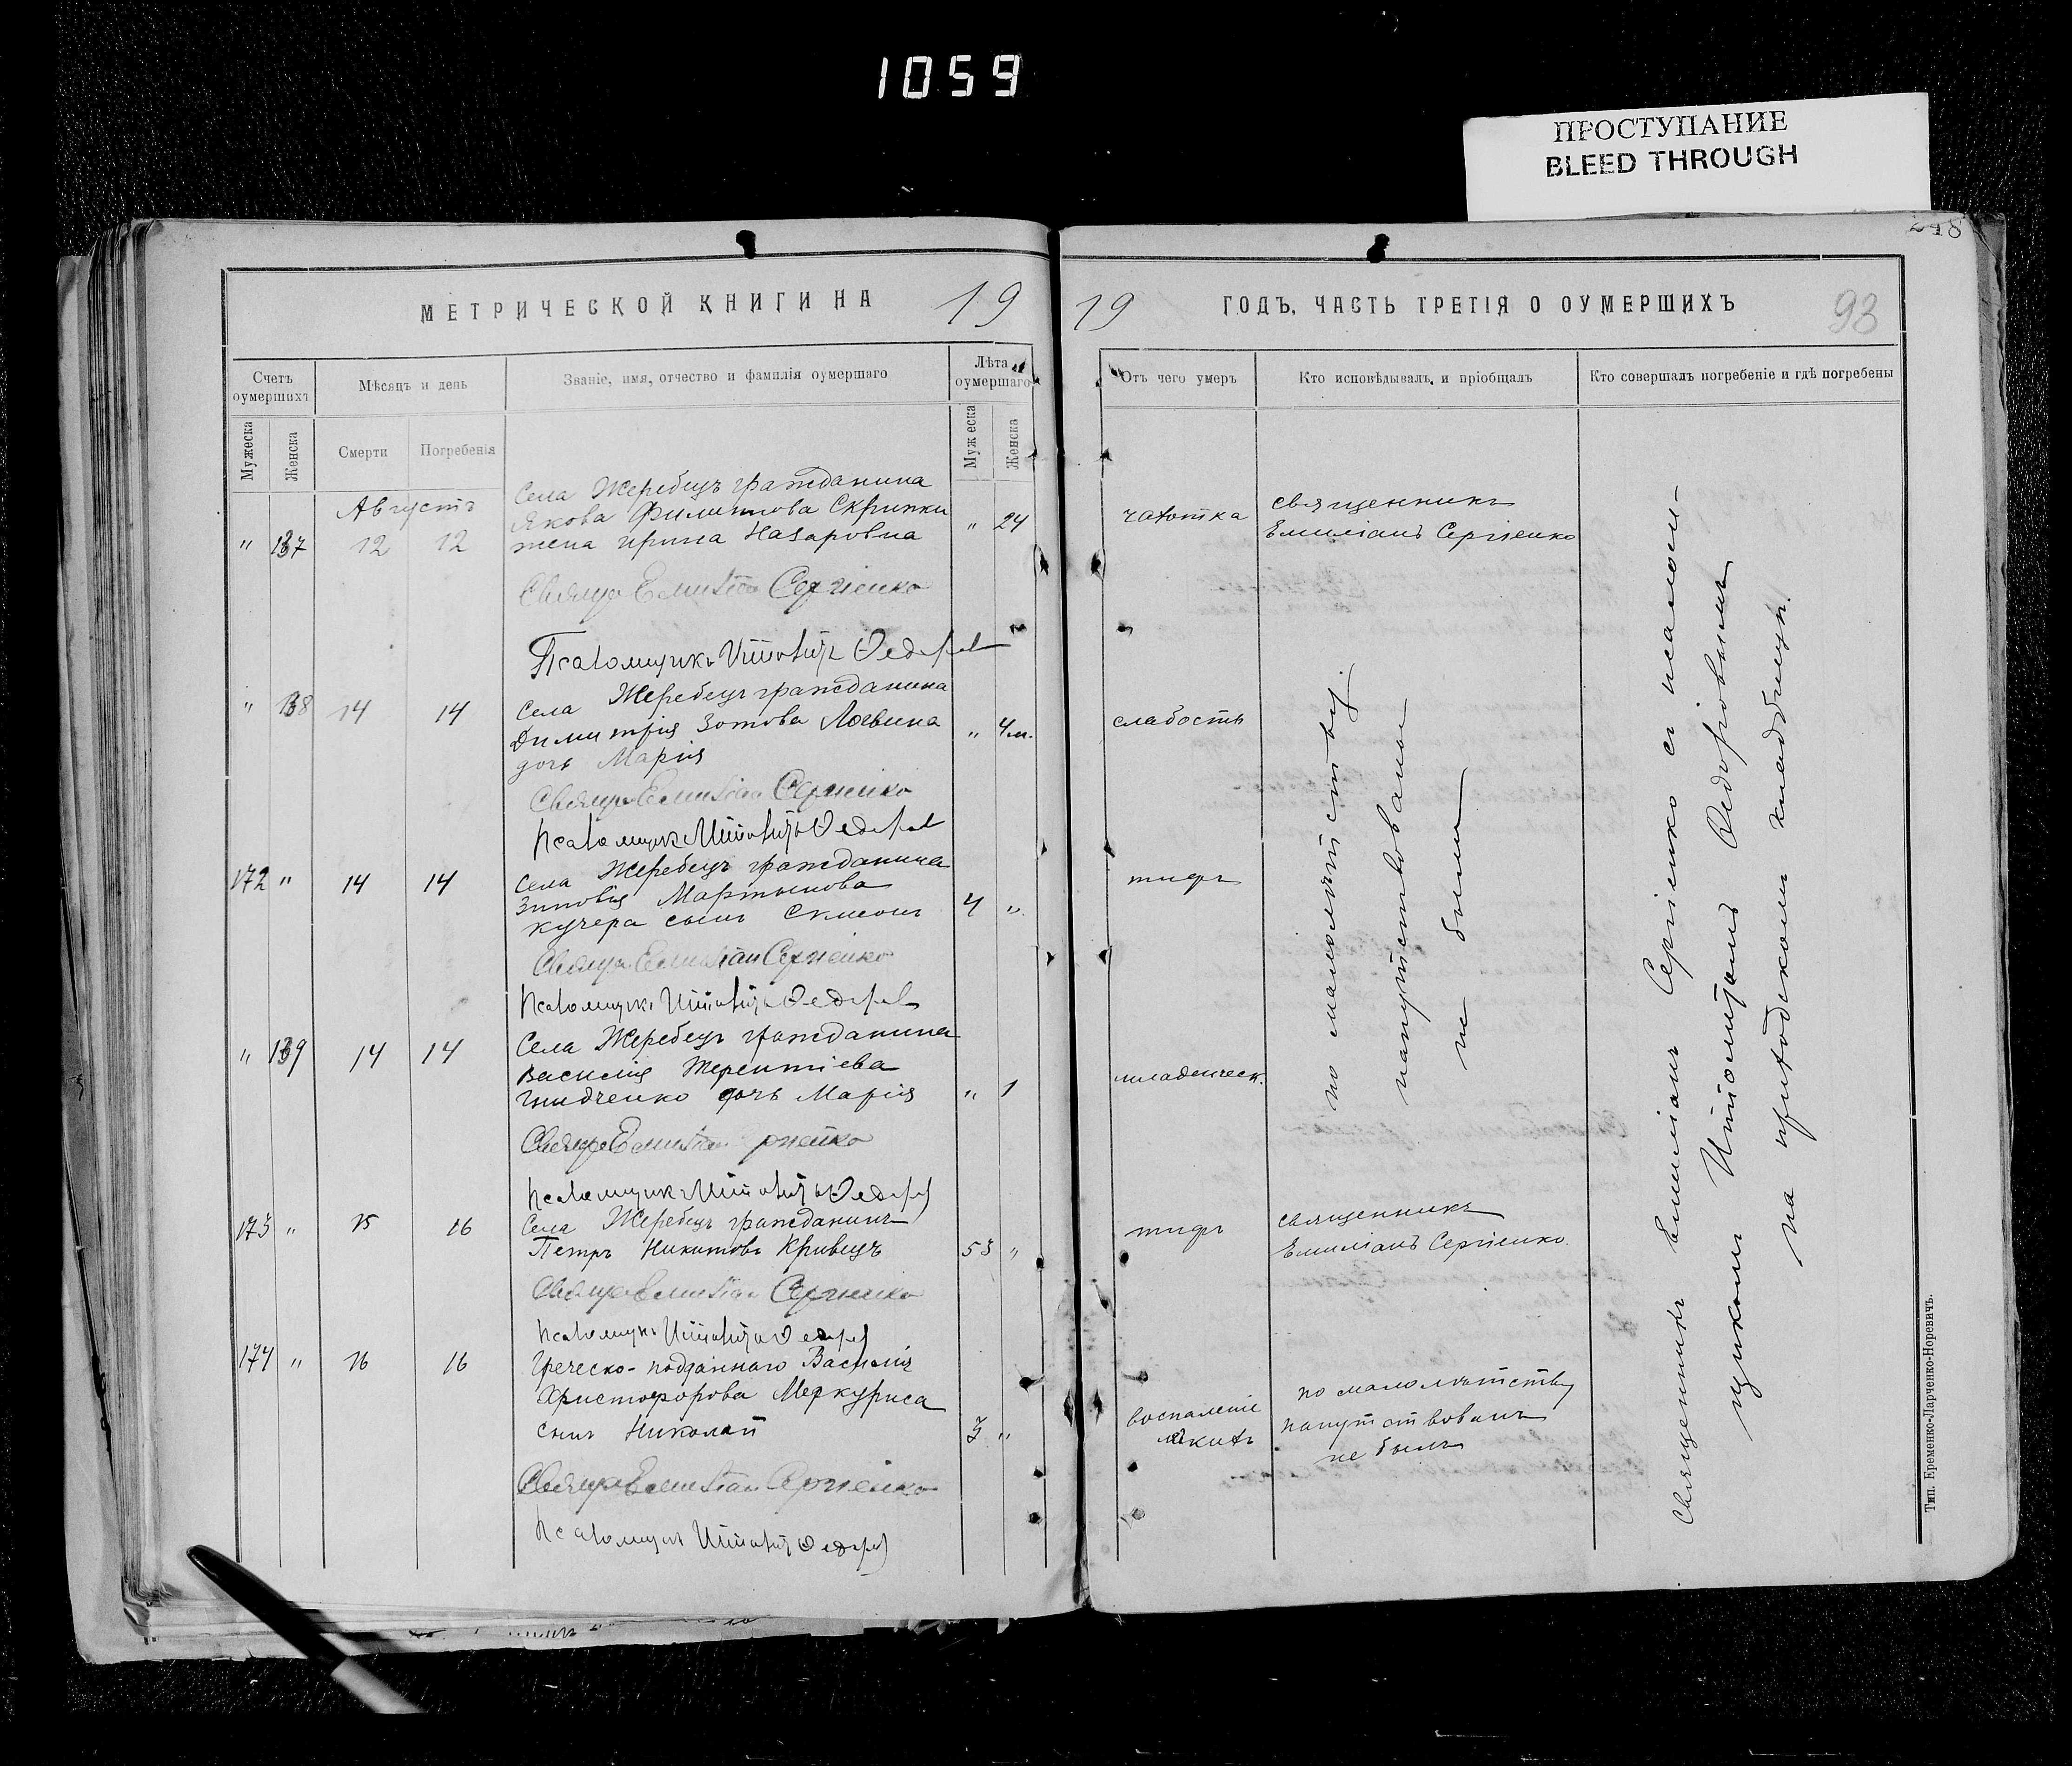 1059
ПРОСТУПАНИЕ
BLEED THROUGH
248
МЕТРИЧЕСКОЙ КНИГИ НА 19
19 ГОДЪ, ЧАСТЬ ТРЕТІЯ О ОУМЕРШИХЪ
93
Счетъ оумершихъ
Мѣсяцъ и день
Званіе, имя, отчество и фамилія оумершаго
Лѣта оумершаго
Отъ чего умеръ
Кто исповѣдывалъ и пріобщалъ
Кто совершалъ погребеніе и гдѣ погребены
Мужеска
Женска
Смерти
Погребенія
Мужеска
Женска
Августъ
Села Жеребецъ гражданина
Якова Филиппова Скрипки
" 137 12 12 жена Ирина Назаровна " 24
чахотка
священникъ
Емиліанъ Сергіенко
Свящ. Емиліан Сергіенко
Псаломщикъ Федоров
" 138 14 14 Села Жеребецъ гражданина
Димитрія Зотова Логвина " 4 м.
дочь Марія
слабость
Свящ. Емиліан Сергіенко
Псаломщик Федоров
172 " 14 14 Села Жеребецъ гражданина
Зиновія Мартынова
Кучера сынъ Симеонъ 4 "
тифъ
Свящ. Емиліан Сергіенко
Псаломщикъ Федоров
" 139 14 14 Села Жеребецъ гражданина
Василія Терентіева
дочь Марія " 1
младенческ.
по малолѣтству
напутствованы
не были
Свящ. Емиліан
Псаломщикъ Федоров
173 " 15 16 Села Жеребецъ гражданинъ
Петръ Никитовъ Кривецъ 53 "
тифъ
священникъ
Емиліанъ Сергіенко
Свящ. Емиліан Сергіенко
Псаломщикъ Федоров
174 " 16 16 Греческо-подданнаго Василія
Христофорова Меркуриса
сынъ Николай 3 "
воспаленіе
по малолѣтству
напутствованъ
не былъ
Свящ. Емиліан Сергіенко
Псаломщикъ Федоров
Священникъ Емиліанъ Сергіенко съ псалом-
щикомъ Федоровымъ
на приходскомъ кладбищѣ.
Тип. Еременко-Ларченко-Норевичъ.